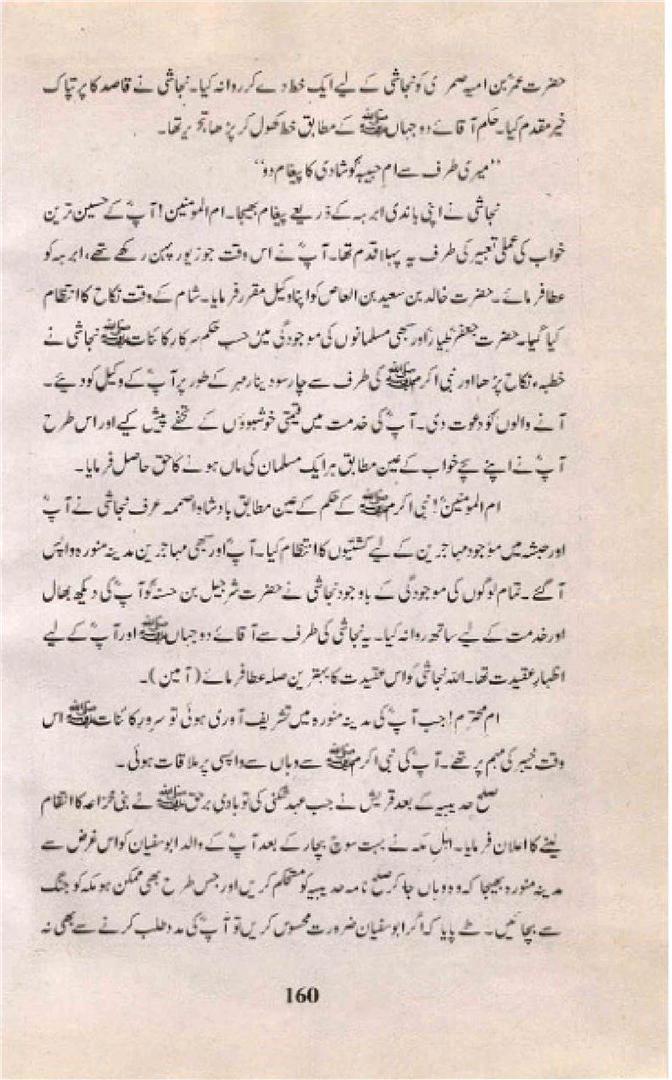 حضرت عمرؓ بن امیہ ضمری کو نجاشی کے لیے ایک خط دے کر روانہ کیا۔ نجاشی نے قاصد کا پرتپاک
خیر مقدم کیا۔ حکم آقائے دو جہاں ﷺ کے مطابق خط کھول کر پڑھا تحریر تھا۔
’’میری طرف سے ام حبیبہؓ کو شادی کا پیغام دو‘‘
نجاشی نے اپنی باندی ابرہہ کے ذریعے پیغام بھیجا۔ ام المومنین! آپؓ کے حسین ترین
خواب کی عملی تعبیر کی طرف یہ پہلا قدم تھا۔ آپؓ نے اس وقت جو زیور پہن رکھے تھے، ابرہہ کو
عطا فرمائے۔ حضرت خالد بن سعید بن العاص کو اپنا وکیل مقرر فرمایا۔ شام کے وقت نکاح کا انتظام
کیا گیا۔ حضرت جعفر طیارؓ اور سبھی مسلمانوں کی موجودگی میں حسب حکم سرکار کائنات ﷺ نجاشی نے
خطبہء نکاح پڑھا اور نبی اکرم ﷺ کی طرف سے چار سو دینار مہر کے طور پر آپؓ کے وکیل کو دیئے۔
آنے والوں کو دعوت دی۔ آپؓ کی خدمت میں قیمتی خوشبوؤں کے تحفے پیش کیے اور اس طرح
آپؓ نے اپنے سچے خواب کے عین مطابق ہر ایک مسلمان کی ماں ہونے کا حق حاصل فرمایا۔
ام المومنینؓ! نبی اکرم ﷺ کے حکم کے عین مطابق بادشاہ اصحمہ عرف نجاشی نے آپؓ
اور حبشہ میں موجود مہاجرین کے لیے کشتیوں کا انتظام کیا۔ آپؓ اور سبھی مہاجرین مدینہ منورہ واپس
آ گئے۔ تمام لوگوں کی موجودگی کے باوجود نجاشی نے حضرت شرجیل بن حسنہؓ کو آپؓ کی دیکھ بھال
اور خدمت کے لیے ساتھ روانہ کیا۔ یہ نجاشی کی طرف سے آقائے دو جہاں ﷺ اور آپؓ کے لیے
اظہار عقیدت تھا۔ اللہ نجاشی کو اس عقیدت کا بہترین صلہ عطا فرمائے (آمین)۔
ام محترم! جب آپؓ کی مدینہ منورہ میں تشریف آوری ہوئی تو سرور کائنات ﷺ اس
وقت خیبر کی مہم پر تھے۔ آپؓ کی نبی اکرم ﷺ سے وہاں سے واپسی پر ملاقات ہوئی۔
صلح حدیبیہ کے بعد قریش نے جب عہد شکنی کی تو ہادی برحق ﷺ نے بنی خزاعہ کا انتقام
لینے کا اعلان فرمایا۔ اہل مکہ نے بہت سوچ بچار کے بعد آپؓ کے والد ابو سفیان کو اس غرض سے
مدینہ منورہ بھیجا کہ وہ وہاں جا کر صلح نامہ حدیبیہ کو مستحکم کریں اور جس طرح بھی ممکن ہو مکہ کو جنگ
سے بچائیں۔ طے پایا کہ اگر ابو سفیان ضرورت محسوس کریں تو آپؓ کی مدد طلب کرنے سے بھی نہ
160